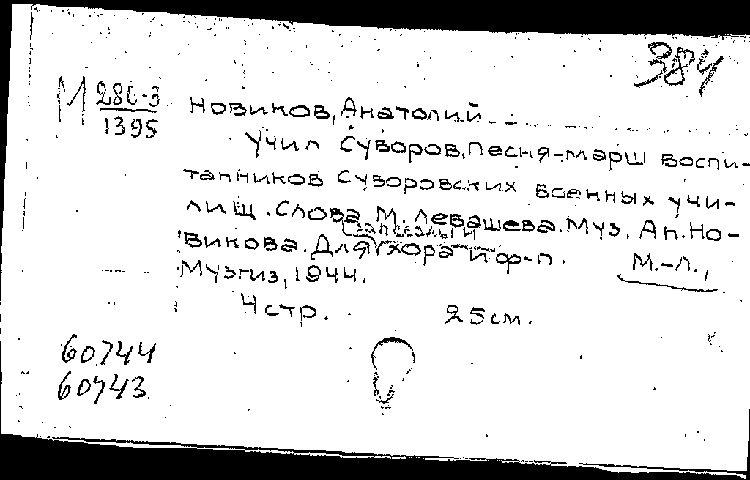 384
М 280-3
1395
Новиков, Анатолий
Учил Суворов. Песня-марш воспи-
танников Суворовских военных учи-
лищ. Слова М. Левашева. Муз. Ан. Но-
викова. Для хора и ф-п. М.-Л.,
Музгиз, 1944.
4 стр. 25 см.
60744
60743